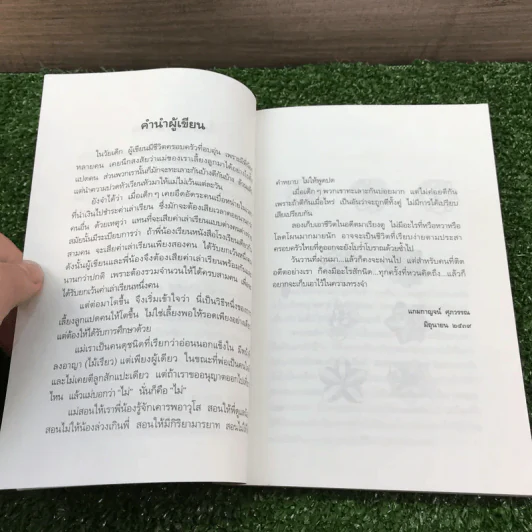 คำนำผู้เขียน
ในวัยเด็ก ผู้เขียนมีชีวิตครอบครัวที่อบอุ่น เพราะมีพี่น้อง
หลายคน เคยนึกสงสัยว่าแม่ของเราเลี้ยงลูกมาได้อย่างไร
แปดคน ส่วนพวกเรานั้นก็มักจะทะเลาะกันบ้างตีกันบ้าง
แต่น่าปวดหัวเวียนหัวมาให้แม่ไม่เว้นแต่ละวัน
ยังจำได้ว่า เมื่อเด็กๆ เคยอึดอัดระคน
ที่นำเงินไปชำระค่าเล่าเรียน ซึ่งมักจะต้องเสียเวลา
คนอื่น ด้วยเหตุว่า แทนที่จะเสียค่าเล่าเรียนแบบต่างคน
สมัยนั้นมีระเบียบการว่า ถ้าพี่น้องเรียนหนังสือโรงเรียน
สามคน จะเสียค่าเล่าเรียนเพียงสองคน ได้รับยกเว้น
ดังนั้นผู้เขียนและพี่น้องจึงต้องเสียค่าเล่าเรียน
นานกว่าปกติ เพราะต้องรวมจำนวนให้ได้ครบสามคน เพื่อ
ได้รับยกเว้นค่าเล่าเรียนหนึ่งคน
แต่ต่อมาโตขึ้น จึงเริ่มเข้าใจว่า นี่เป็นวิธีหนึ่งของการ
เลี้ยงลูกแปดคนให้โตขึ้น ไม่ใช่เลี้ยงพอให้รอดเพียงอย่าง
แต่ต้องให้ได้รับการศึกษาด้วย
แม่เราเป็นคนดุชนิดที่เรียกว่าอ่อนนอกแข็งใน
ลงอาญา (ไม้เรียว) แต่เพียงผู้เดียว ในขณะที่พ่อเป็นคน
และไม่เคยตีลูกสักแปะเดียว แต่ถ้าเราขออนุญาตออกไป
ไหน แล้วแม่บอกว่า “ไม่” นั่นก็คือ “ไม่”
แม่สอนให้เราพี่น้องรู้จักเคารพอาวุโส สอนให้พี่ดูแล
สอนไม่ให้น้องล่วงเกินพี่ สอนให้มีกิริยามารยาท
คำหยาบ ไม่ให้พูดปด
เมื่อเด็กๆ พวกเราทะเลาะกันบ่อยมาก แต่ไม่ค่อยตีกัน
เพราะถ้าตีกันเมื่อไหร่ เป็นอันว่าจะถูกตีทั้งคู่ ไม่มีการได้เปรียบ
เสียเปรียบกัน
ลองเก็บเอาชีวิตในอดีตมาเรียงดู ไม่มีอะไรที่หรือหวาหรือ
โลดโผนมากมายนัก อาจจะเป็นชีวิตที่เรียบง่ายตามประสา
ครอบครัวไทยที่ดูออกจะยังโบร่ำโบราณด้วยซ้ำไป...
วันวานที่ผ่านมา...แล้วก็คงจะผ่านไป แต่สำหรับคนที่ติด
อดีตอย่างเรา ก็คงมีอะไรสักนิด...ทุกครั้งที่หวนคิดถึง...แล้วก็
อยากจะเก็บเอาไว้ในความทรงจำ
แถมกาญจน์ ศุภวรรณ
มิถุนายน ๒๕๓๙